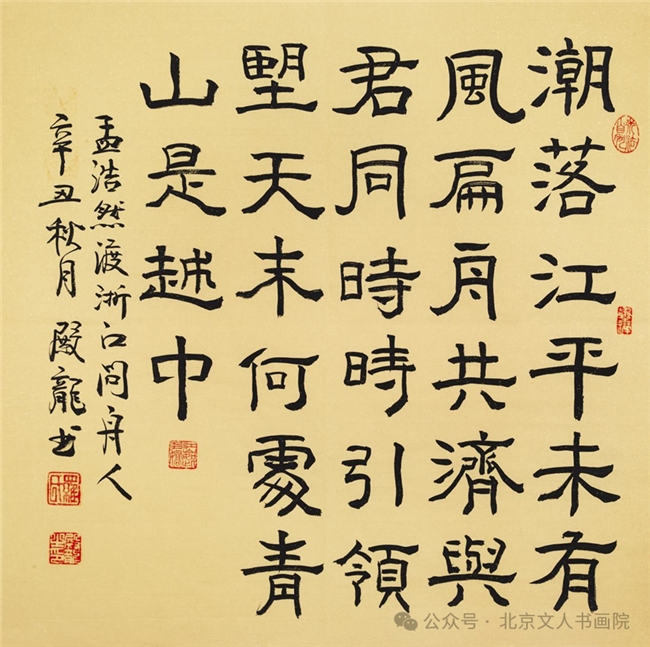 潮落江平未有
風扁舟共濟與
君同時時引領
朢天末何處青
山是越中
孟浩然渡浙江問舟人
辛丑秋月 殿龍书
公众号 · 北京文人书画院